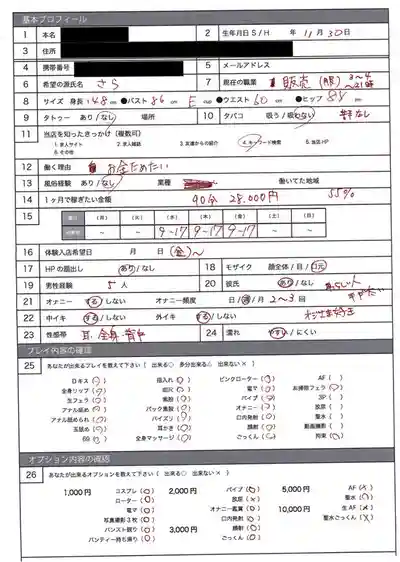 基本プロフィール
1 本名 2 生年月日 S / H 年 11月 30日
3 住所
4 携帯番号 5 メールアドレス
6 希望の源氏名 さら 7 現在の職業 販売 (服) 3~4
8 サイズ 身長 148 cm ●バスト 86 cm E cup ●ウエスト 60 cm ●ヒップ 88 cm
9 タトゥー あり / なし 場所 10 タバコ 吸う / 吸わない なし
11 当店を知ったきっかけ (複数可)
1. 求人サイト 2. 求人雑誌 3. 友達からの紹介 4. キーワード検索 5. 当店HP
6. その他
12 働く理由 お金ためたい
13 風俗経験 あり / なし 業種 働いてた地域
14 1ヶ月で稼ぎたい金額 90分 28,000円 55%
15 (月) (火) (水) (木) (金) (土) (日)
9-17 9-17 9-17
16 体験入店希望日 月 日 (金)~
17 HPの顔出し あり / なし 18 モザイク 顔全体 / 目 / 口元
19 男性経験 5 人 20 彼氏 あり / なし
21 オナニー する / しない オナニー頻度 日 / 週 / 月 2~3 回
22 中イキ する / しない 外イキ する / しない
23 性感帯 耳 全身 背中 24 濡れ やすい / にくい
プレイ内容の確認
25 あなたが出来るプレイを教えて下さい ( 出来る○ 多分出来る△ 出来ない× )
Dキス (○) 指入れ (○) ピンクローター (○) AF ( )
全身リップ (○) 素股 (○) 電マ (○) お掃除フェラ (○)
生フェラ (○) バイブ (○) 3P ( )
アナル舐め (○) パック素股 (○) オナニー (○) 放尿 ( )
アナル舐められ (○) パイズリ (○) 口内発射 (○) 聖水 ( )
玉舐め (○) 耳かき (○) 顔射 (○) 動画撮影 ( )
69 (○) 全身マッサージ (○) ごっくん (○) 拘束 (○)
オプション内容の確認
26 あなたが出来るオプションを教えて下さい ( 出来る○ 出来ない× )
1,000円 コスプレ (○) 2,000円 バイブ (○) 5,000円 AF (×)
ローター (○) 放尿 (×) 聖水 (○)
電マ (○) オナニー鑑賞 (○) 10,000円 生AF (×)
写真撮影3枚 (○) 口内発射 (○) 聖水ごっくん (×)
パンスト破り (○) 3,000円 顔射 (○)
パンティー持ち帰り (○) ごっくん (○)